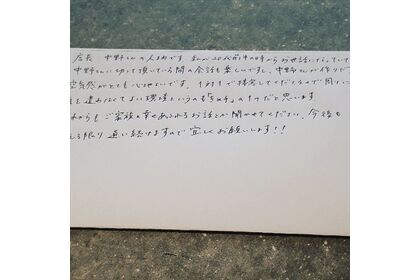 店長 中野さんの人柄です。私が20代前半の時からお世話になっていて
中野さんに切って頂いている間の会話も楽しいですし、中野さんが作りだ
空気感がとても心地よいです。1対1で接客してくださるので周りに
を遣わなくてよい環境というのも「きめ手」の1つだと思います。
れからもご家族の幸せあふれるお話とか聞かせてください。今後も
える限り通い続けますので宜しくお願いします!!